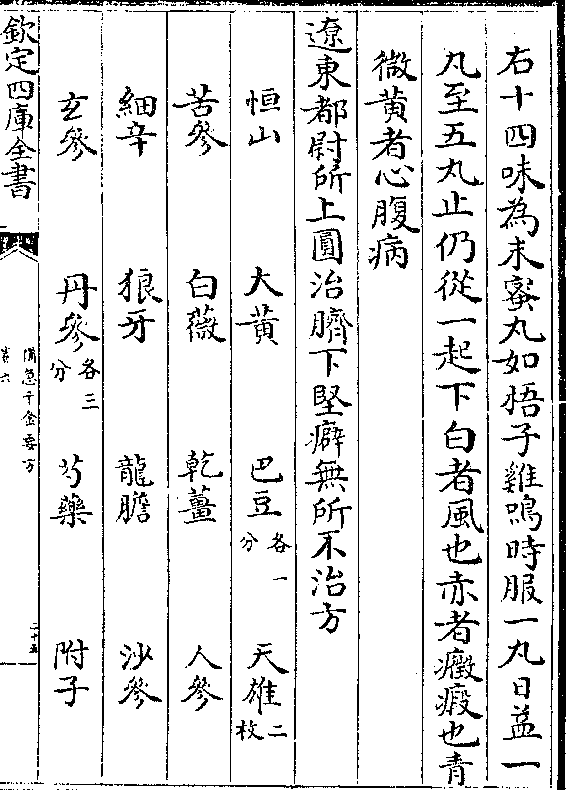 右十四味為末蜜丸如梧子雞鳴時服一丸日益一
丸至五丸止仍從一起下白者風也赤者癥瘕也青
微黄者心腹病
遼東都尉所上圓治臍下堅癖無所不治方
恒山 大黄 巴豆各一分 天雄二枚
苦參 白薇 乾薑 人參
細辛 狼牙 龍膽 沙參
玄參 丹參各三分 芍藥 附子
欽定四庫全書
備急千金要方
卷六
二十五